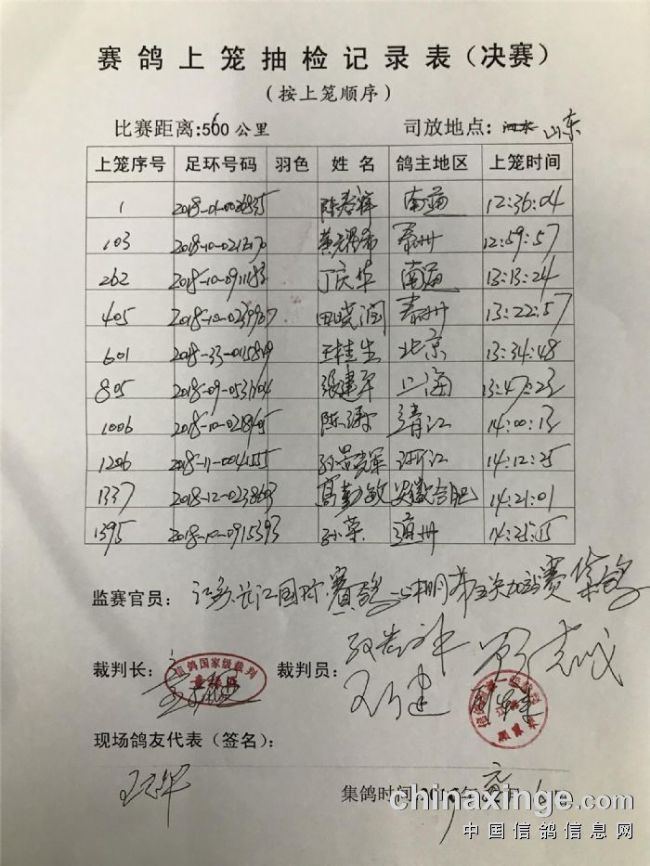 赛鸽上笼抽检记录表（决赛）
（按上笼顺序）
比赛距离:560公里 司放地点: 山东
上笼序号 足环号码 羽色 姓名 鸽主地区 上笼时间
1 2018-01-0026835 陈春辉 南通 12:36:04
103 2018-10-0212170 泰州 12:59:57
262 2018-10-0911183 丁庆华 南通 13:13:24
405 2018-10-0239907 田晓润 泰州 13:22:57
601 王桂生 北京 13:34:48
805 2018-09-0531104 张建军 上海 13:47:23
1006 2018-10-0218605 陈涛 靖江 14:00:13
1206 2018-11-0041555 浙江 14:12:25
1337 2018-12-0238603 高勤敏 安徽合肥 14:21:01
1395 2018-10-0915393 孙荣 通州 14:25:15
监赛官员: 江苏长江国际赛鸽
裁判长: 信鸽国家级裁判 裁判员:
现场鸽友代表（签名）:
集鸽时间:
chinaxinge.com
中国信鸽信息网